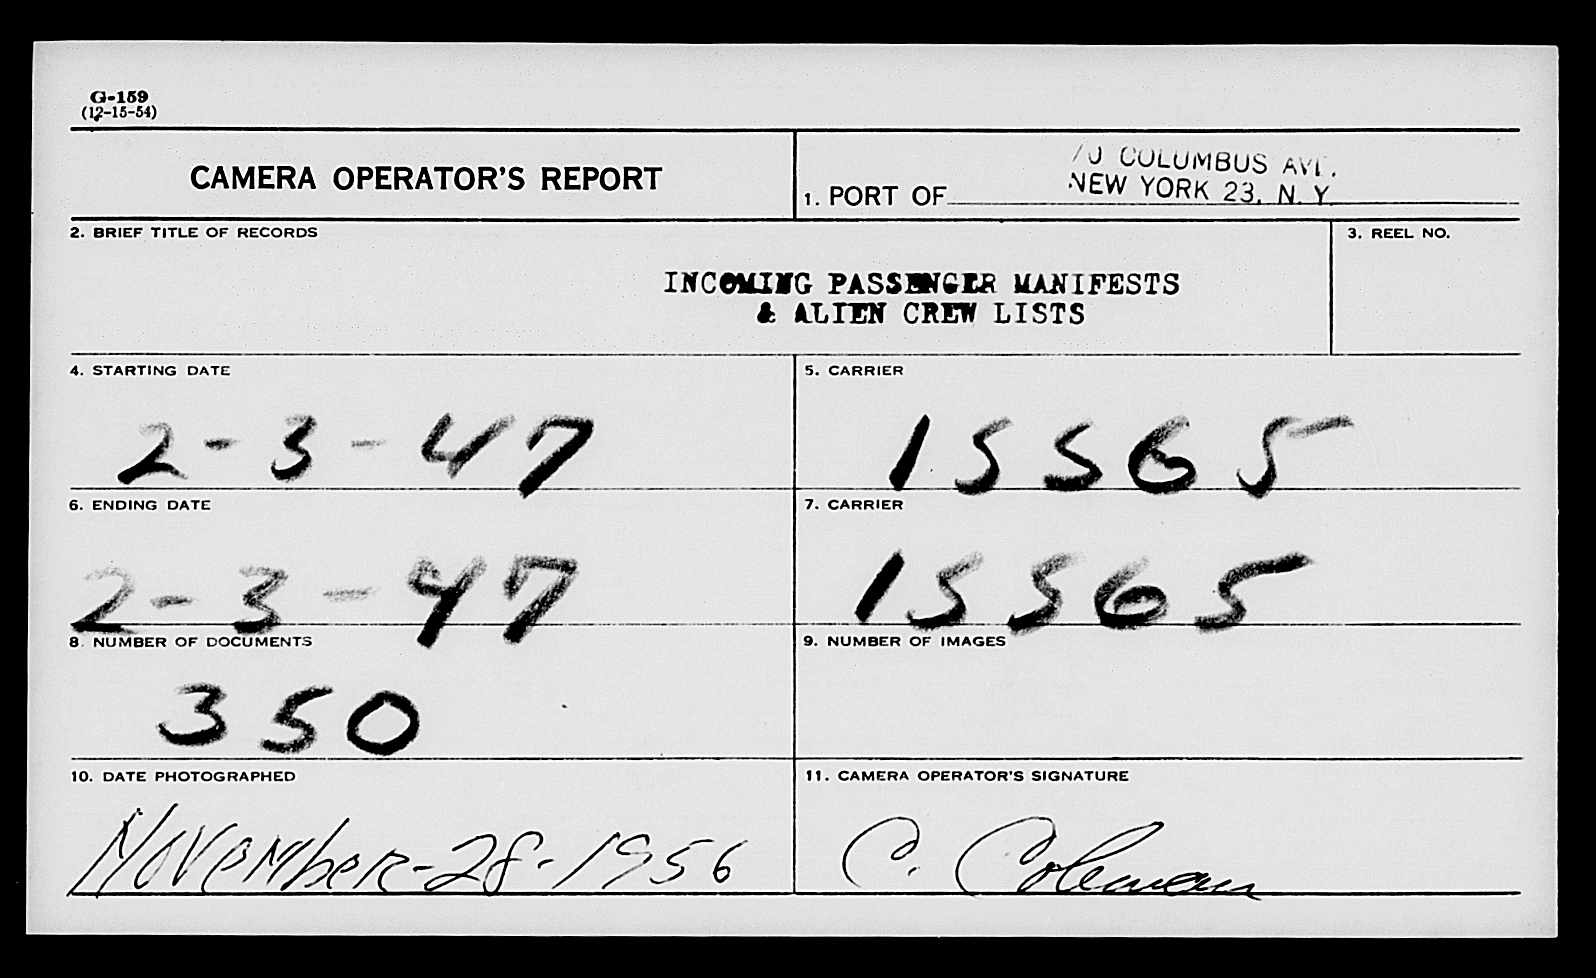 G-159
(12-15-54)
CAMERA OPERATOR'S REPORT
1. PORT OF
70 COLUMBUS AVE.
NEW YORK 23, N. Y.
2. BRIEF TITLE OF RECORDS
3. REEL NO.
INCOMING PASSENGER MANIFESTS
& ALIEN CREW LISTS
4. STARTING DATE
5. CARRIER
2-3-47
15565
6. ENDING DATE
7. CARRIER
2-3-47
15565
8. NUMBER OF DOCUMENTS
9. NUMBER OF IMAGES
350
10. DATE PHOTOGRAPHED
11. CAMERA OPERATOR'S SIGNATURE
November-28-1956
C. Coleman